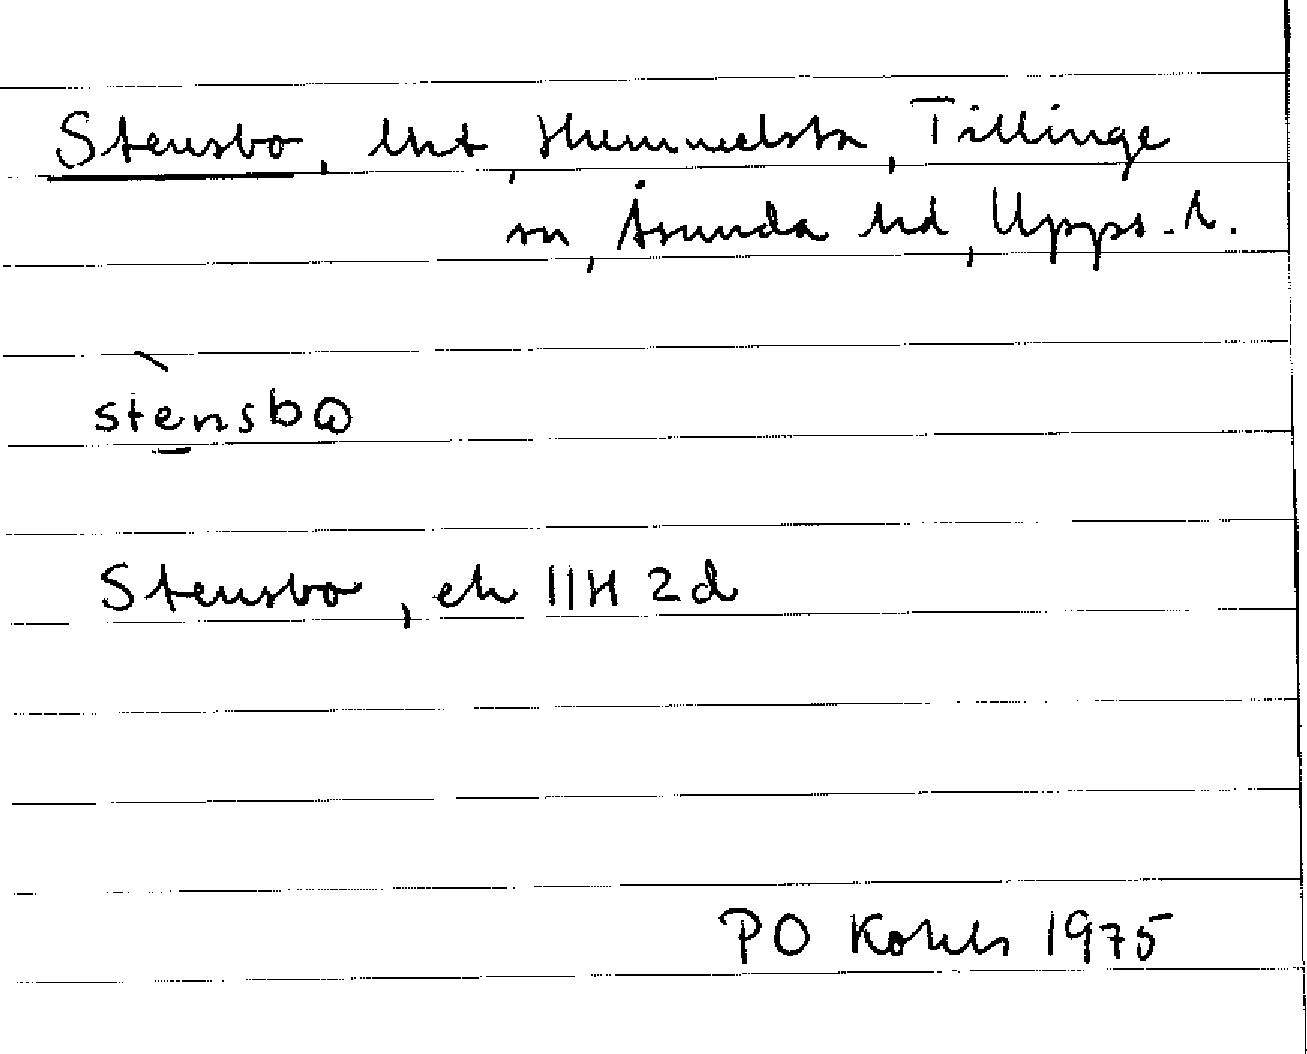 Stensbo, lht, Hummelsta, Tillinge
sn, Åsunda hd, Upps. l.
stènsbω
Stensbo, ek 11H 2d
PO 1975